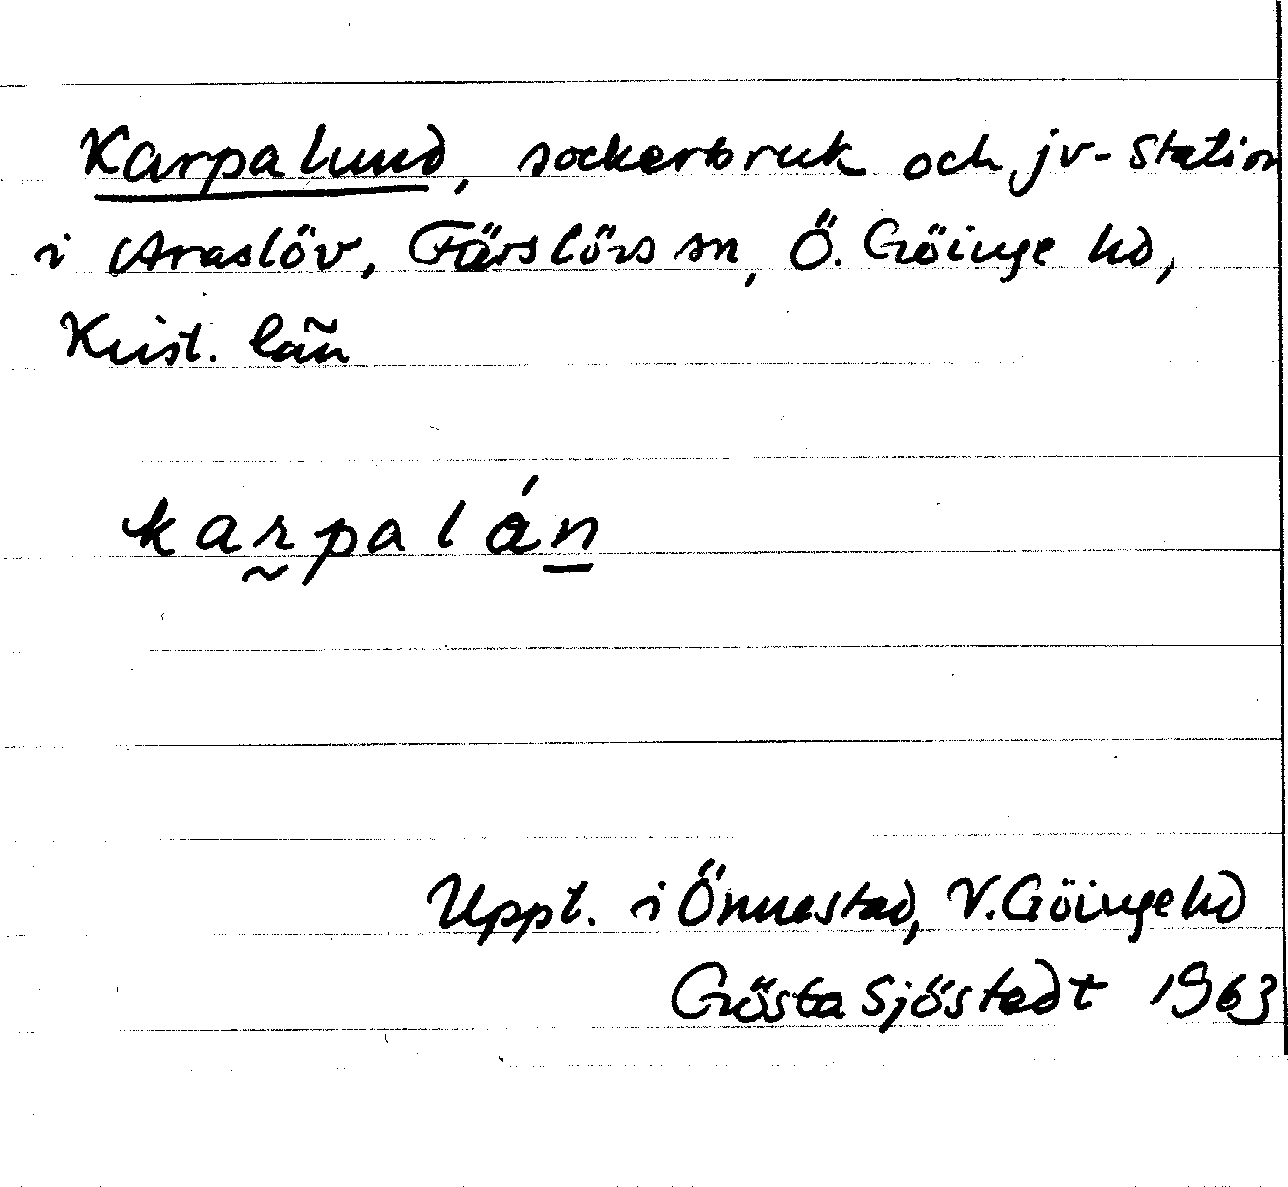 Karpalund, sockerbruk och jv-station
i Araslöv, Färslövs sn, Ö. Göinge hd,
Krist. län
karpalán
Uppt. i Önnestad, V. Göinge hd
Gösta Sjöstedt 1963